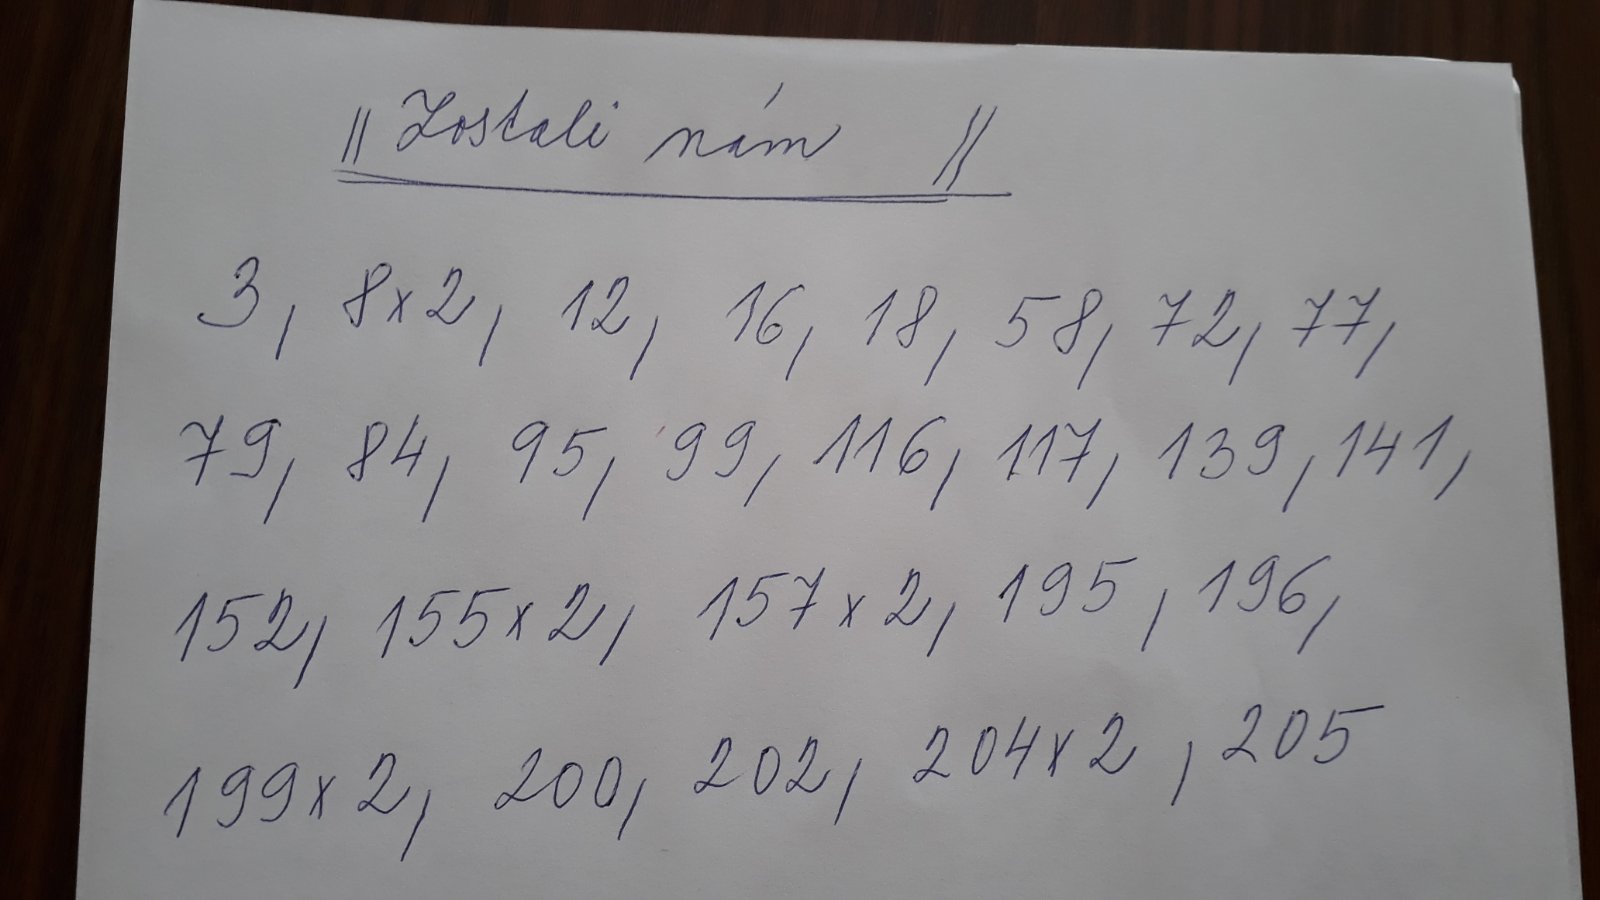 " Zostali nám "
3, 8x2, 12, 16, 18, 58, 72, 77,
79, 84, 95, 99, 116, 117, 139, 141,
152, 155x2, 157x2, 195, 196,
199x2, 200, 202, 204x2, 205